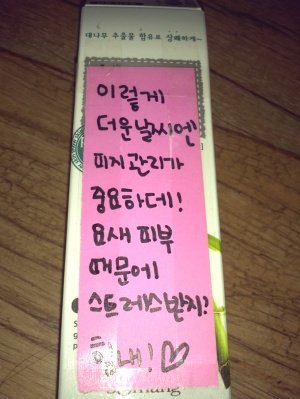 대나무 추출물 함유로 상쾌하게~
이렇게
더운날씨엔
피지관리가
중요하데!
요새 피부
때문에
스트레스받지?
힘내!♡